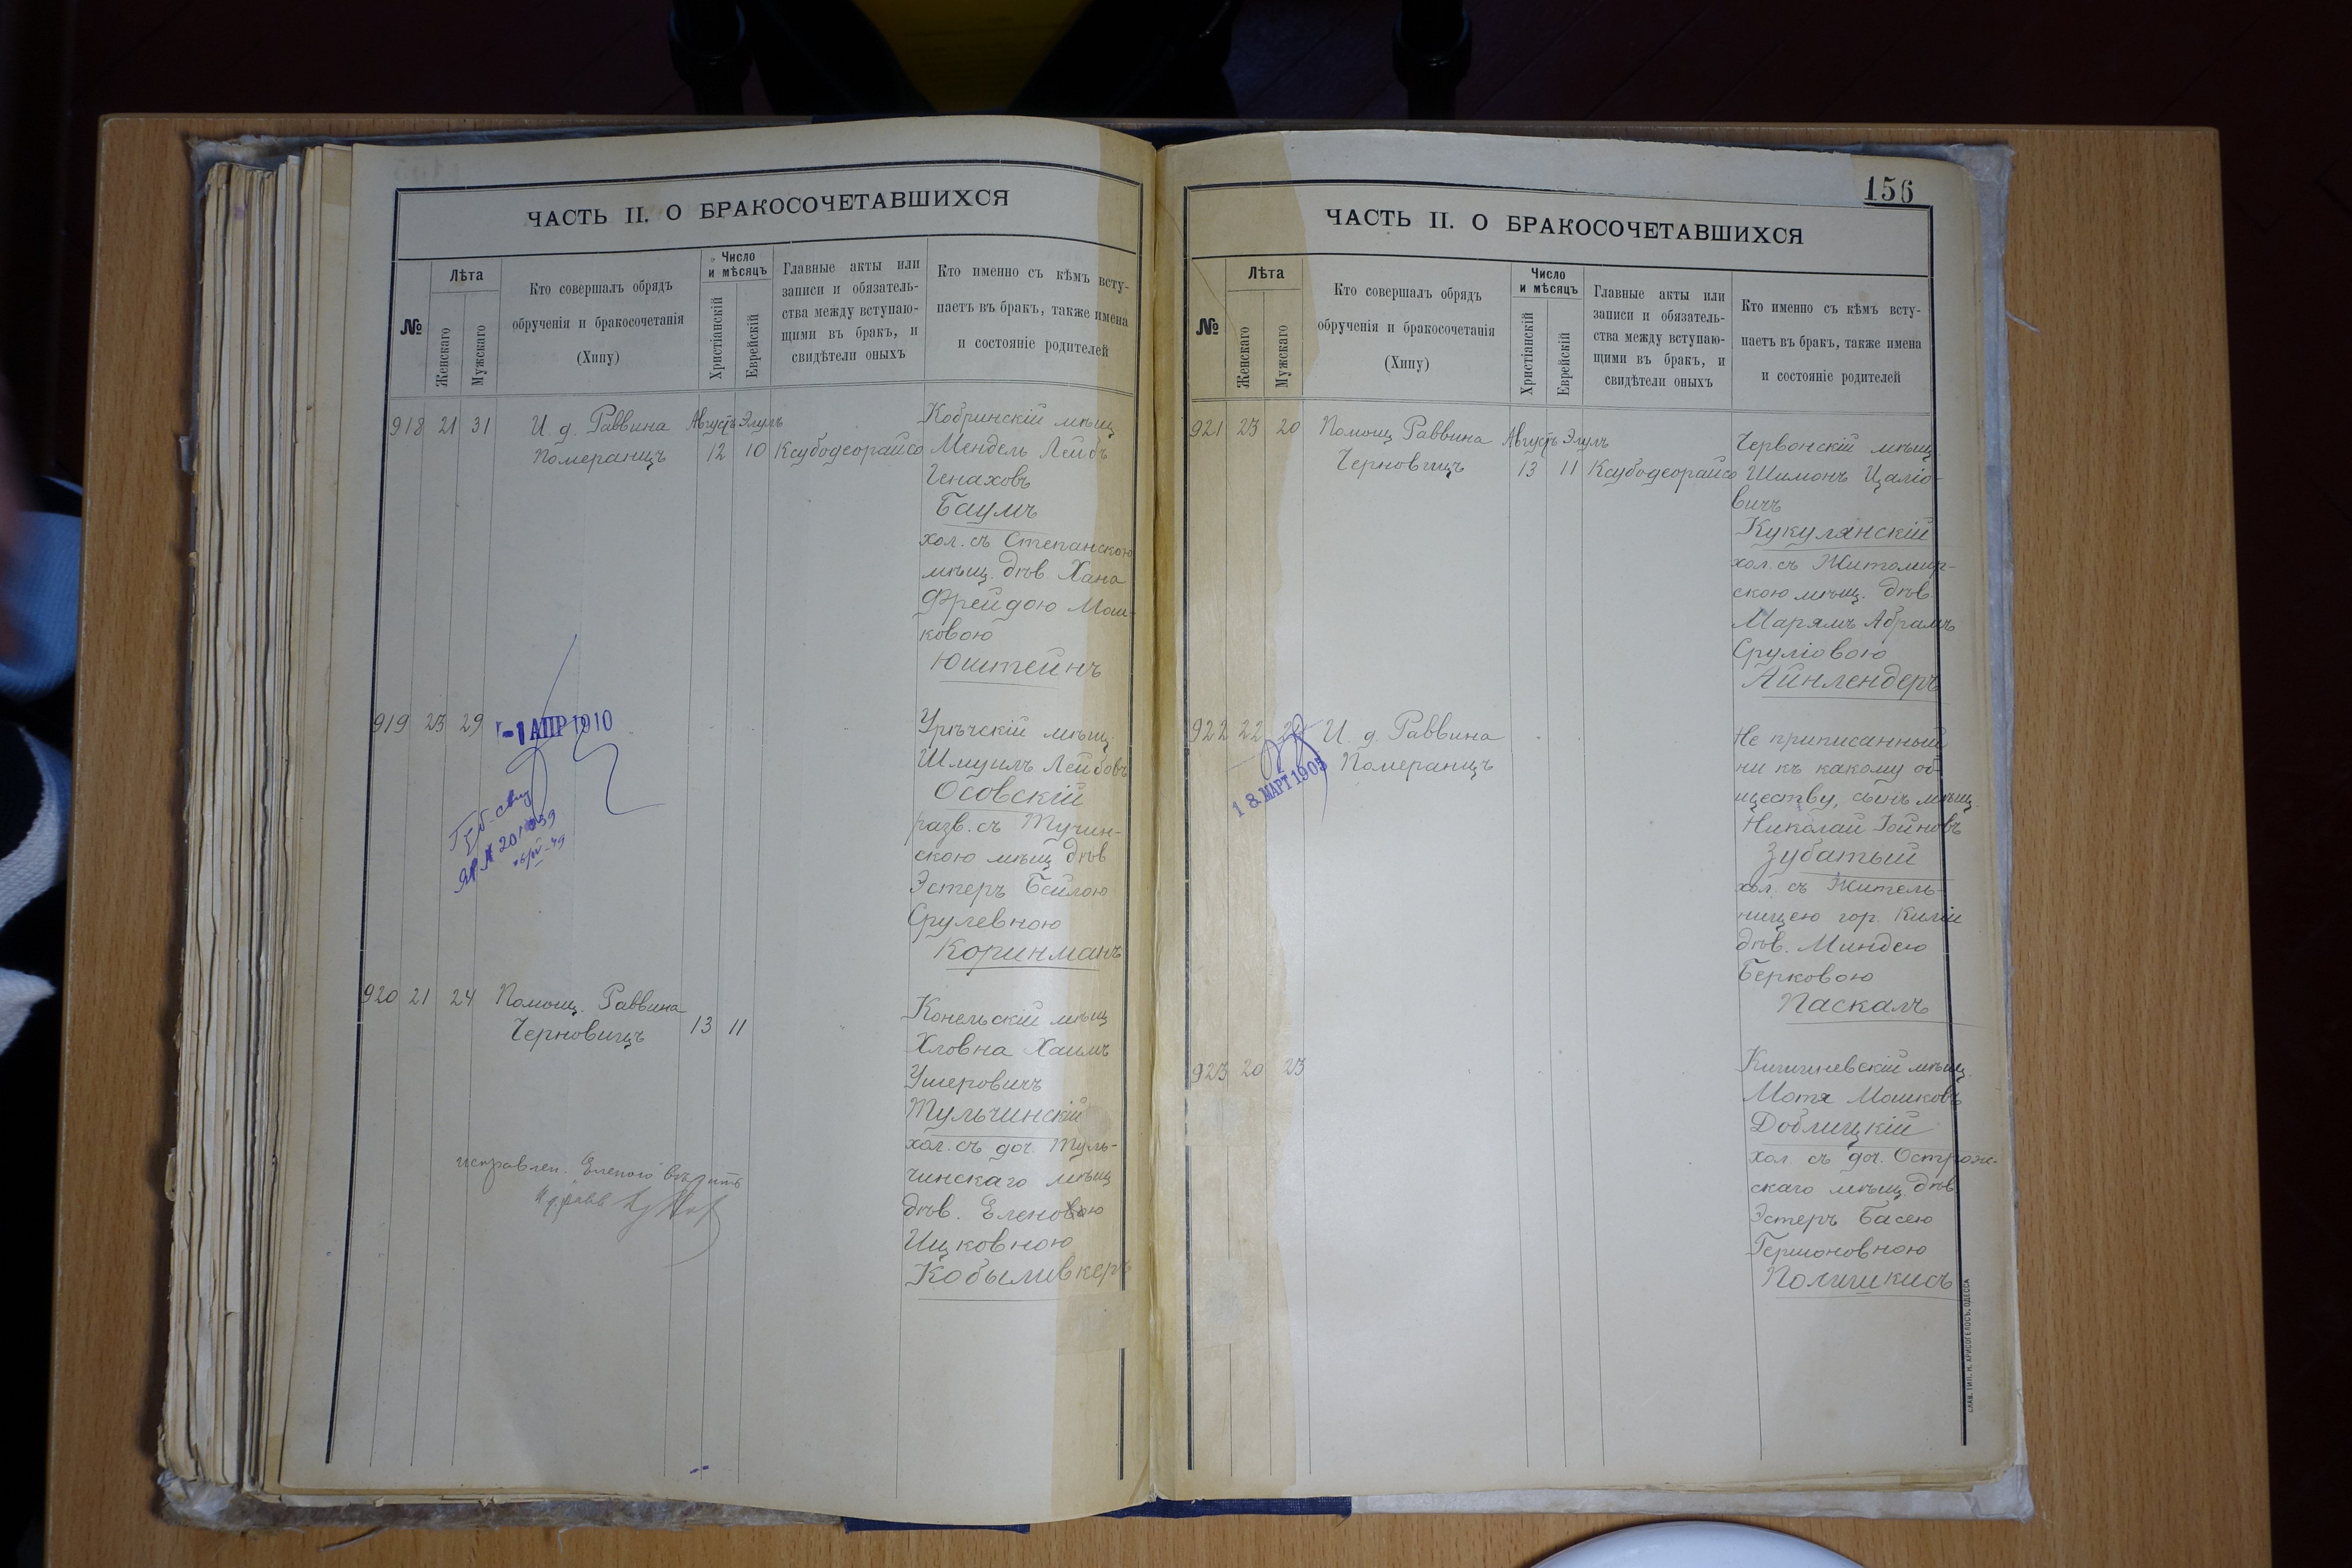 ЧАСТЬ II. О БРАКОСОЧЕТАВШИХСЯ
№
Лѣта
Женскаго
Мужскаго
Кто совершалъ обрядъ
обрученія и бракосочетанія
(Хипу)
Число
и мѣсяцъ
Христіанскій
Еврейскій
Главные акты или
записи и обязатель-
ства между вступаю-
щими въ бракъ, и
свидѣтели оныхъ
Кто именно съ кѣмъ всту-
паетъ въ бракъ, также имена
и состояніе родителей
918 21 31 И. д. Раввина Августъ Элулъ
Померанцъ 12 10 Ксубодеорайсо
Кобринскій мѣщ
Мендель Лейбъ
Генаховъ
Баумъ
хол. съ Степанскою
мѣщ. дѣв. Хана
Фрейдою Мош-
ковою
Юштейнъ
919 23 29
-1 АПР 1910
Урѣчскій мѣщ.
Шмуилъ Лейбовъ
Осовскій
разв. съ Тучин-
скою мѣщ дѣв
Эстеръ Бейлою
Срулевною
Коринманъ
920 21 24 Помощ. Раввина
Черновицъ 13 11
Конельскій мѣщ
Хловна Хаимъ
Ушеровичъ
Тульчинскій
хол. съ доч. Туль-
чинскаго мѣщ
дѣв. Еленою
Ицковною
Кобыливкеръ
исправлен. "Еленою" вѣрить
156
ЧАСТЬ II. О БРАКОСОЧЕТАВШИХСЯ
№
Лѣта
Женскаго
Мужскаго
Кто совершалъ обрядъ
обрученія и бракосочетанія
(Хипу)
Число
и мѣсяцъ
Христіанскій
Еврейскій
Главные акты или
записи и обязатель-
ства между вступаю-
щими въ бракъ, и
свидѣтели оныхъ
Кто именно съ кѣмъ всту-
паетъ въ бракъ, также имена
и состояніе родителей
921 23 20 Помощ Раввина Августъ Элулъ
Черновицъ 13 11 Ксубодеорайсо
Червонскій мѣщ
Шимонъ Цаліо-
вичъ
Кукулянскій
хол съ Житомир-
скою мѣщ. дѣв.
Марямъ Абрамъ
Сруліовою
Айнлендеръ
922 22 И. д. Раввина
Померанцъ
18 МАРТ 1905
Не приписанный
ни къ какому об-
ществу, сынъ мѣщ.
Николай Іойновъ
Зубатый
хол. съ Житель-
ницею гор. Киліи
дѣв. Миндею
Берковою
Паскаль
923 20 23
Кишиневскій мѣщ.
Мотя Мошковъ
Доблицкій
хол. съ доч. Острож-
скаго мѣщ. дѣв
Эстеръ Басею
Гершоновною
Полишкисъ
СЛАВ. ТИП. Н. ХРИСОГЕЛОСЪ, ОДЕССА